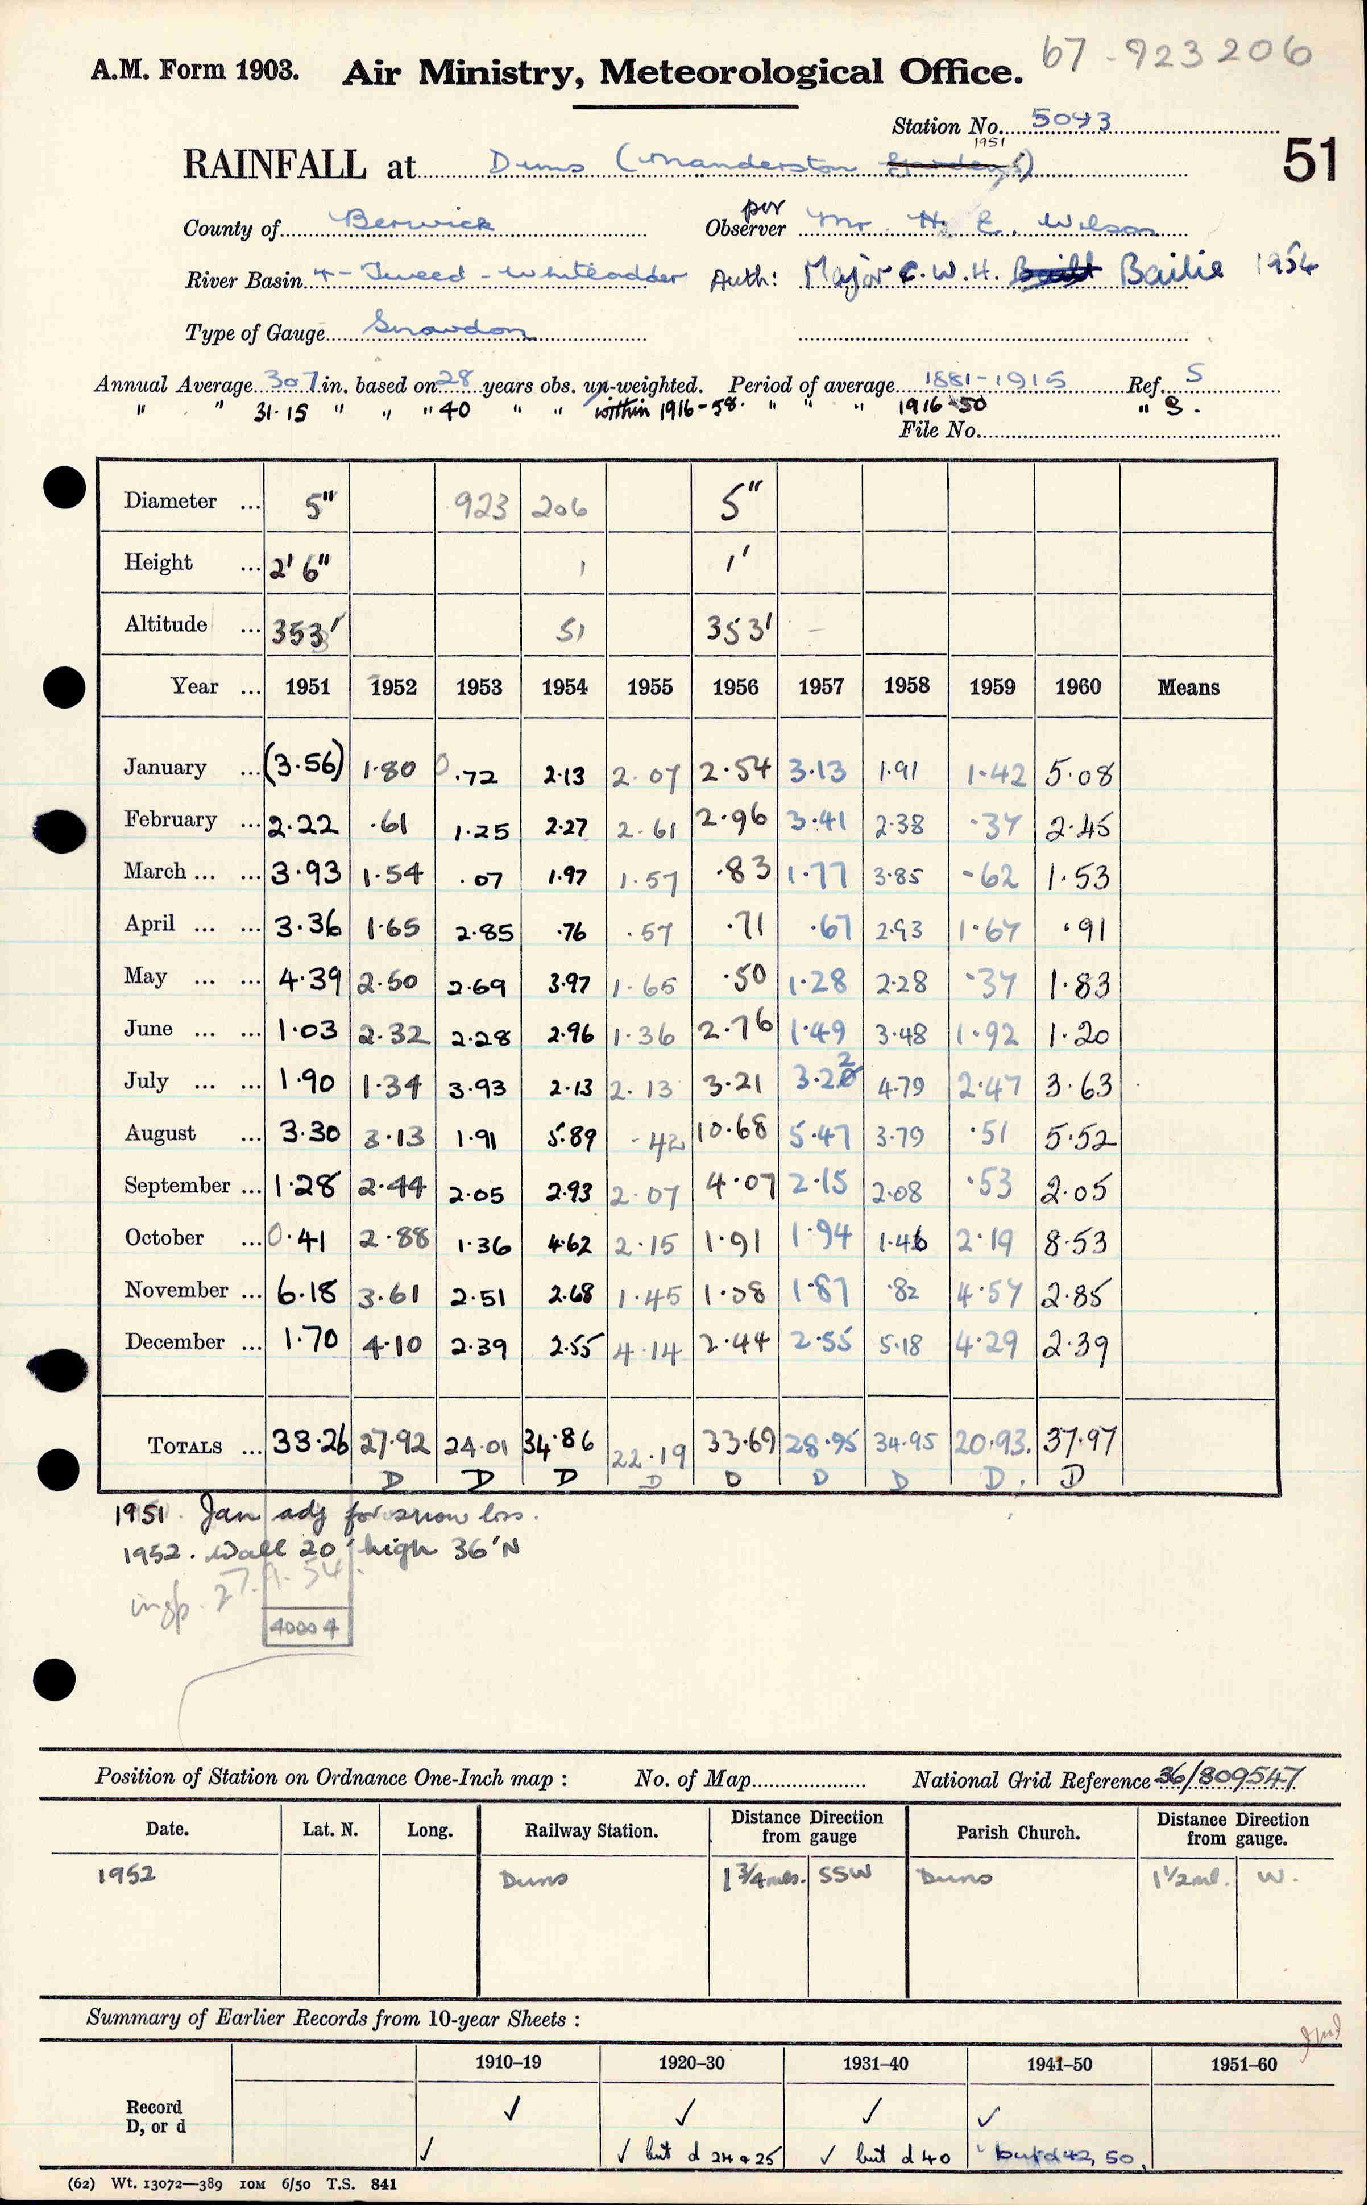 67-923206
A.M. Form 1903. Air Ministry, Meteorological Office.
Station No. 5093
1951
RAINFALL at Duns (Manderston Gardens)
51
County of Berwick per Observer Mr. H. E. Wilson
River Basin 4 - Tweed - Whiteadder Auth: Major C. W. H. Bailie 1954
Type of Gauge Snowdon
Annual Average 30.7 in. based on 28 years obs. un-weighted. Period of average 1881-1915 Ref. S
" " 31.15 " " " 40 " " within 1916-58. " " " 1916-50 " S.
File No.
Diameter ... 5" 923 206 5"
Height ... 2' 6" 1 1'
Altitude ... 353' 51 353' -
Year ... 1951 1952 1953 1954 1955 1956 1957 1958 1959 1960 Means
January ... (3.56) 1.80 0.72 2.13 2.07 2.54 3.13 1.91 1.42 5.08
February ... 2.22 .61 1.25 2.27 2.61 2.96 3.41 2.38 .37 2.45
March ... ... 3.93 1.54 .07 1.97 1.57 .83 1.77 3.85 .62 1.53
April ... ... 3.36 1.65 2.85 .76 .57 .71 .67 2.93 1.67 .91
May ... ... 4.39 2.50 2.69 3.97 1.65 .50 1.28 2.28 .37 1.83
June ... ... 1.03 2.32 2.28 2.96 1.36 2.76 1.49 3.48 1.92 1.20
July ... ... 1.90 1.34 3.93 2.13 2.13 3.21 3.22 4.79 2.47 3.63
August ... 3.30 3.13 1.91 5.89 .42 10.68 5.47 3.79 .51 5.52
September ... 1.28 2.44 2.05 2.93 2.07 4.07 2.15 2.08 .53 2.05
October ... 0.41 2.88 1.36 4.62 2.15 1.91 1.94 1.46 2.19 8.53
November ... 6.18 3.61 2.51 2.68 1.45 1.08 1.87 .82 4.57 2.85
December ... 1.70 4.10 2.39 2.55 4.14 2.44 2.55 5.18 4.29 2.39
TOTALS ... 33.26 27.92 24.01 34.86 22.19 33.69 28.95 34.95 20.93. 37.97
D D D D D D D D D
1951. Jan adj for snow loss.
1952. Wall 20' high 36' N
insp. 27.9.54.
40004
Position of Station on Ordnance One-Inch map : No. of Map National Grid Reference 36/809547
Date. Lat. N. Long. Railway Station. Distance Direction from gauge Parish Church. Distance Direction from gauge.
1952 Duns 1 3/4 mls. SSW Duns 1 1/2 ml. W.
Summary of Earlier Records from 10-year Sheets :
1910–19 1920–30 1931–40 1941–50 1951–60
Record D, or d ✓ ✓ ✓ ✓
✓ ✓ but d 24 & 25 ✓ but d 40 but d 42, 50.
(62) Wt. 13072—389 10M 6/50 T.S. 841